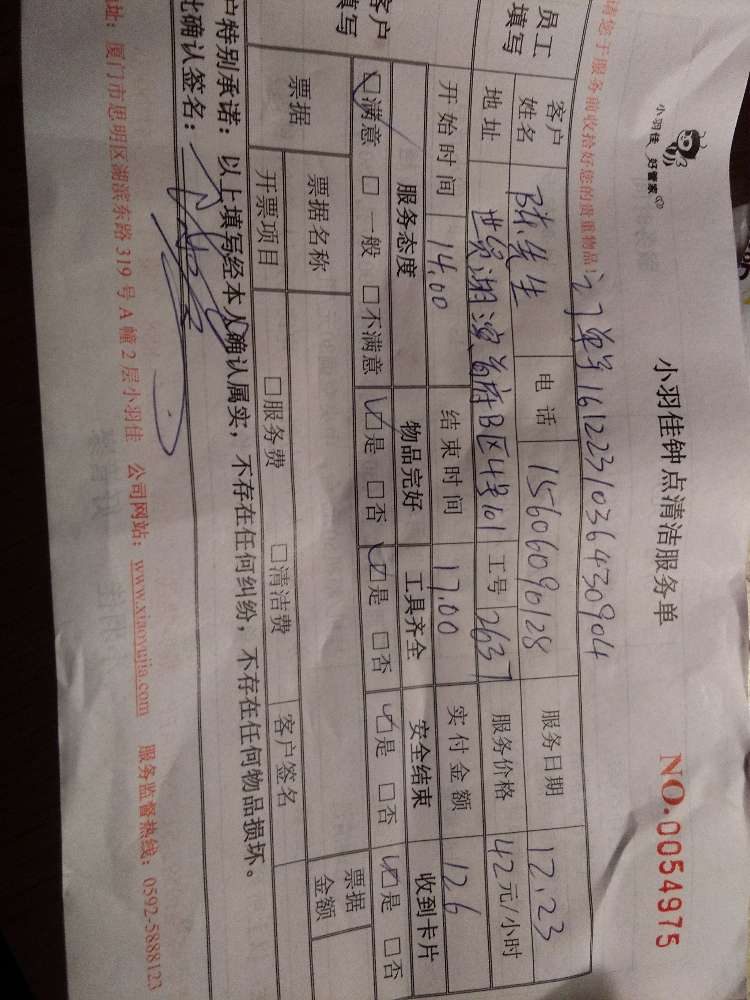 小羽佳 好管家
小羽佳钟点清洁服务单
NO.0054975
请您于服务前收拾好您的贵重物品!
订单号16122310364430904
员工填写
客户姓名 陈先生 电话 15606090128 服务日期 12.23
地址 世贸湖滨首府B区4号101 工号 2637 服务价格 42元/小时
开始时间 14.00 结束时间 17.00 实付金额 126
客户填写
服务态度 物品完好 工具齐全 安全结束 收到卡片
☑满意 □一般 □不满意 ☑是 □否 ☑是 □否 ☑是 □否 ☑是 □否
票据 票据名称 票据金额
开票项目 □服务费 □清洁费 客户签名
户特别承诺:以上填写经本人确认属实,不存在任何纠纷,不存在任何物品损坏。
此确认签名:
址:厦门市思明区湖滨东路319号A幢2层小羽佳 公司网站:www.xiaoyujia.com 服务监督热线:0592-5888123